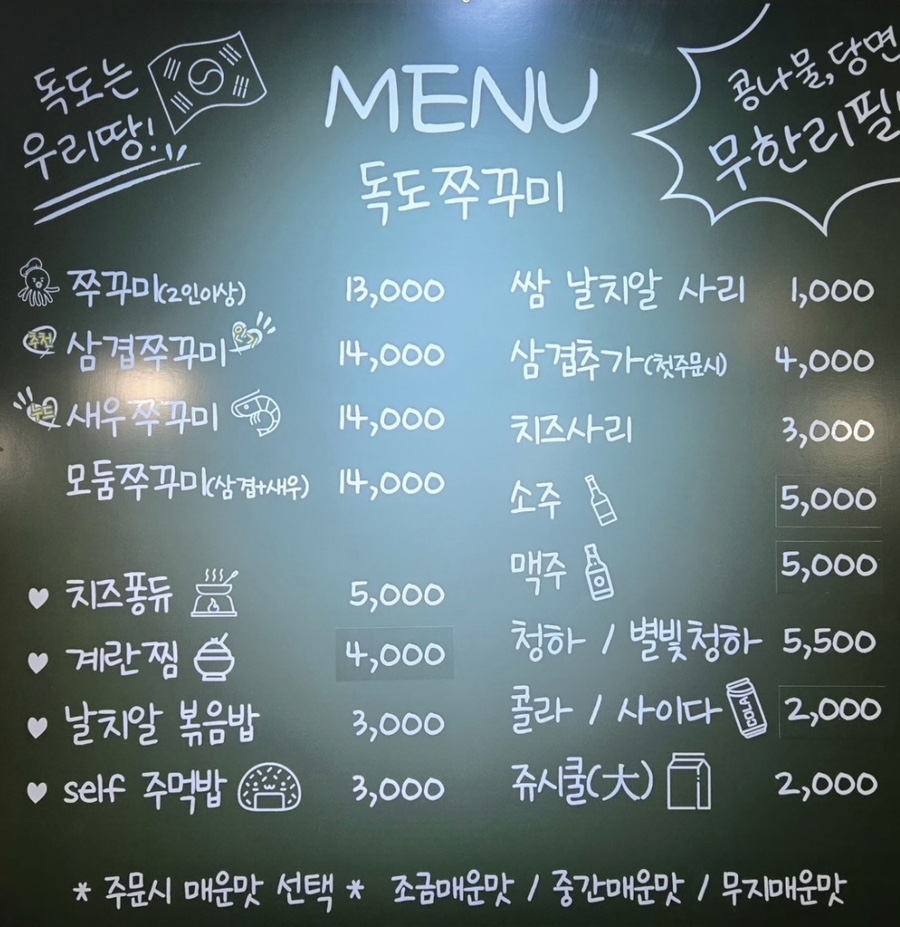 독도는
우리땅!
MENU
독도쭈꾸미
콩나물,당면
무한리필
쭈꾸미(2인이상) 13,000
추천 삼겹쭈꾸미 인기 14,000
누드 새우쭈꾸미 14,000
모둠쭈꾸미(삼겹+새우) 14,000
♥ 치즈퐁듀 5,000
♥ 계란찜 4,000
♥ 날치알 볶음밥 3,000
♥ self 주먹밥 3,000
쌈 날치알 사리 1,000
삼겹추가(첫주문시) 4,000
치즈사리 3,000
소주 5,000
맥주 5,000
청하 / 별빛청하 5,500
콜라 / 사이다 2,000
쥬시쿨(大) 2,000
* 주문시 매운맛 선택 * 조금매운맛 / 중간매운맛 / 무지매운맛